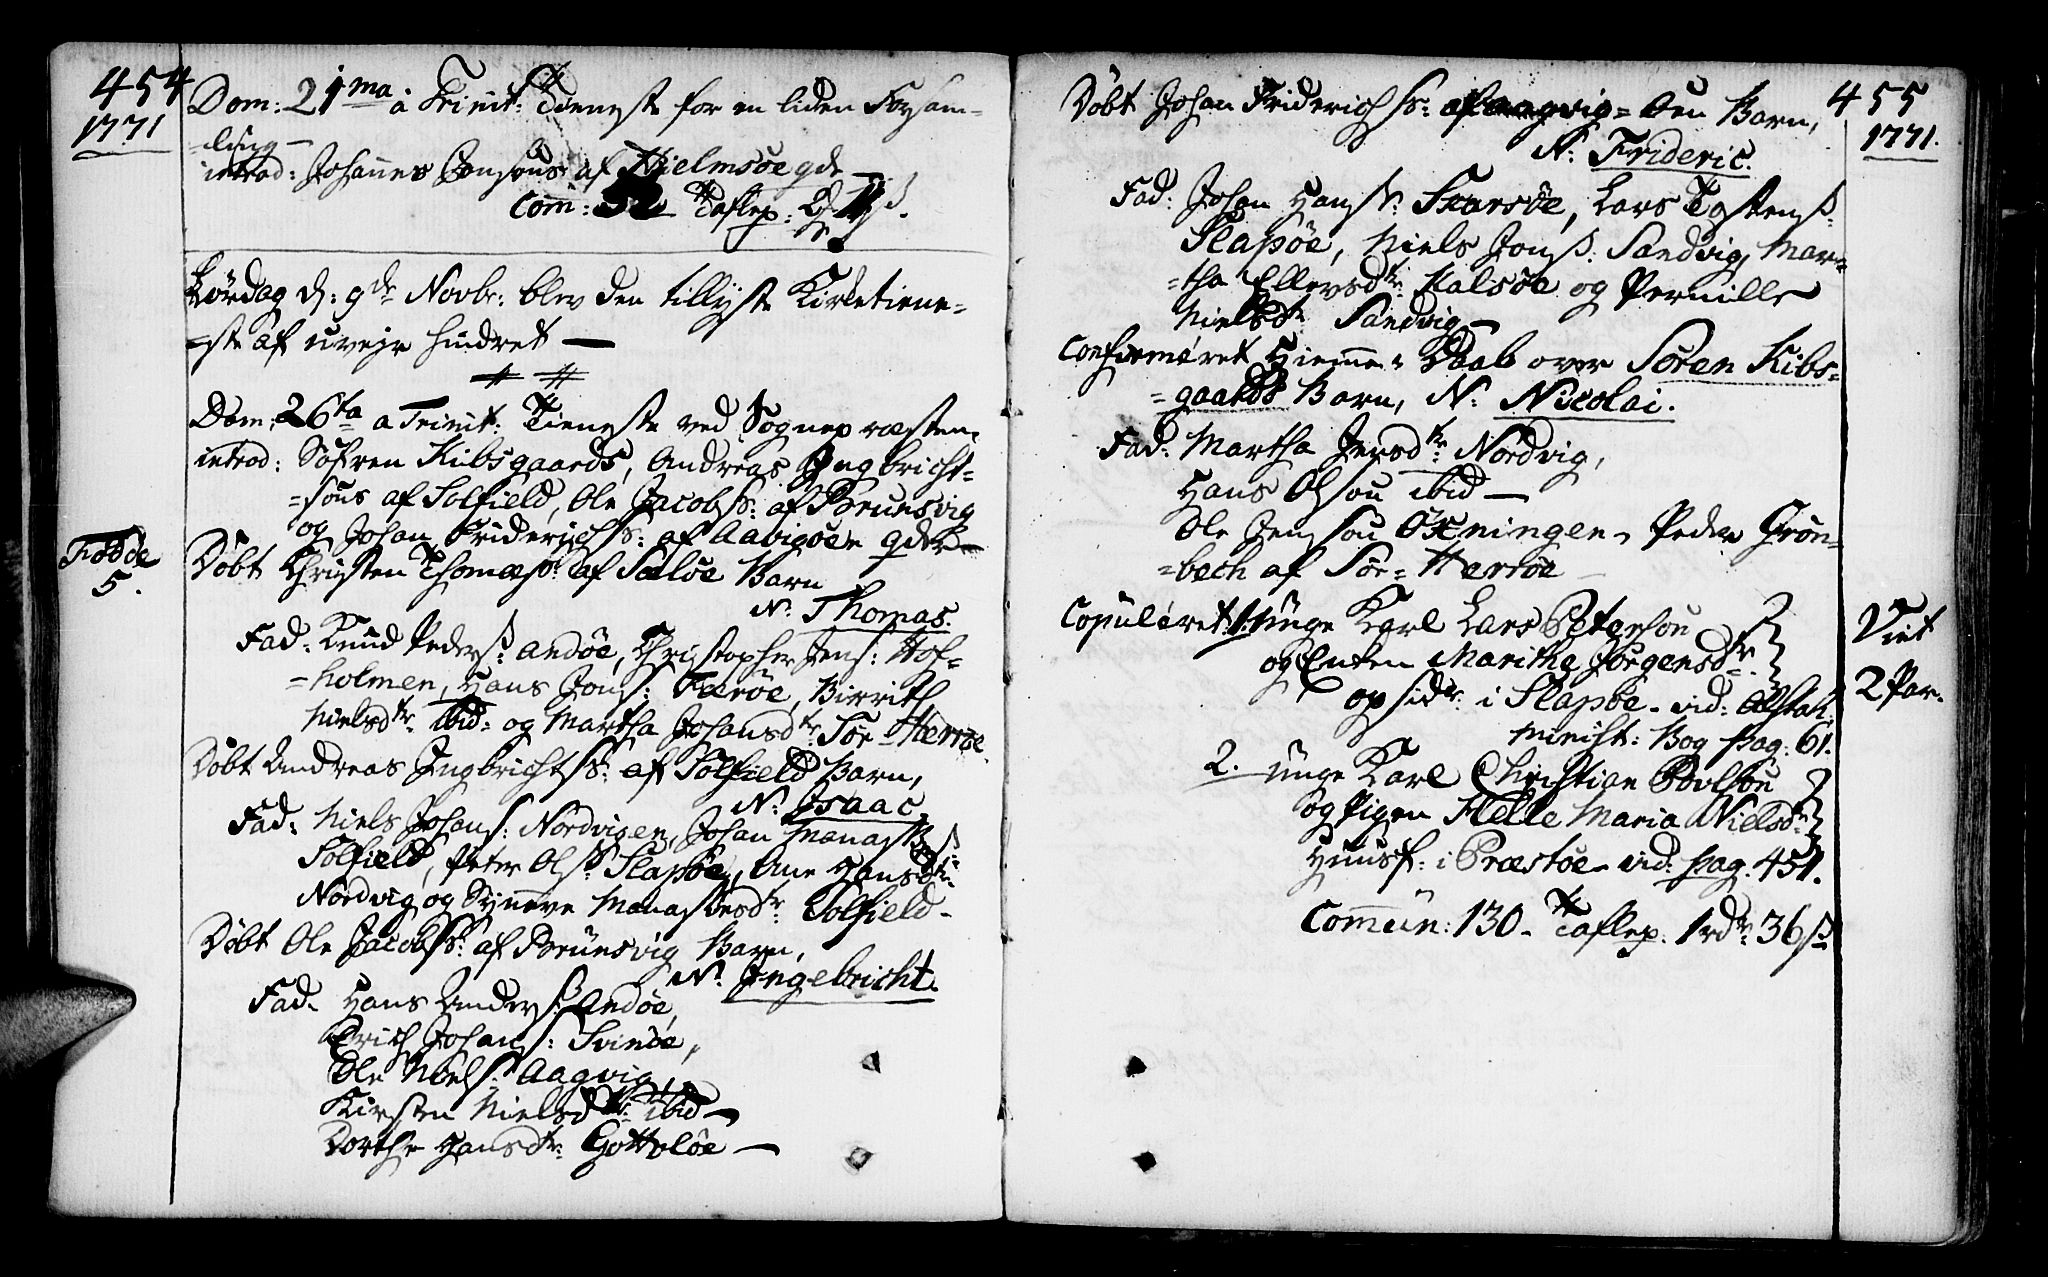 454
1771
Dom: 21ma à Trinit: Tieneste for en liden Forsam-
-ling-
introd: Johannes Jonsøns af Hielmsøe qde
Com: Taflep:
Lørdag d: 9de Novbr: blev den tillyste Kirketiene-
-ste af uvejr hindret —
Dom: 26ta a Trinit: Tieneste ved Sognepræsten,
introd: Søfren Kibsgaards, Andreas Ingbricht-
-søns af Solfield, Ole Jacobss: af Brunsvig
og Johan Friderichss: af Aavigøen qder-
Fødde
5.
Døbt Christen Thomæss: af Sæløe Barn
N: Thomas.
Fad: Knud Peders: Andøe, Christopher Jens: Hof-
-holmen, Hans Jons: Færøe, Birrith
Nielsdtr: ibid: og Martha Johansdtr Sør-Herrøe.
Døbt Andreas Ingbrichtss: af Solfield Barn,
N: Isaac
Fad: Niels Johans: Nordvigen, Johan Manass:
Solfield, Peter Ols: Slapøe, Ane Hansdtr:
Nordvig og Synneve Manassesdtr: Solfield-
Døbt Ole Jacobss: af Brunsvig Barn,
N: Ingebricht.
Fad. Hans Anders: Andøe,
Erich Johans: Svinøe,
Ole Niels: Aagvig,
Kirsten Nielsdtr: ibid-
Dorthe Hansdtr: Gottvløe —
455
1771.
Døbt Johan Friderichss: Barn,
N: Frideric.
Fad: Johan Hans: Skarsøe, Lars Tostens:
Slapøe, Niels Jons: Sandvig, Mar-
-tha Ellevsdtr: Kalsøe og Pernille
Nielsdtr Sandvig-
Confirmeret Hiemme-Daab over Søren Kibs-
-gaards Barn, N: Nicolai.
Fad: Martha Jensdtr: Nordvig,
Hans Olsøn ibid —
Ole Jensøn Øxningen, Peder Grøn-
-bech af Sør-Herrøe
Copuleret 1. unge Karl Lars Petersøn
og Enken Marithe Jørgensdtr:
opsidr: i Slapøe - vid: Alstah:
Minist: Bog pag: 61.
Viet
2 Par.
2. unge Karl Christian Povlsøn
og Pigen Helle Maria Nielsdr
Huusf: i Præstøe - vid: pag: 451.
Commun: 130 - Taflep: 1 rdr: 36 ß